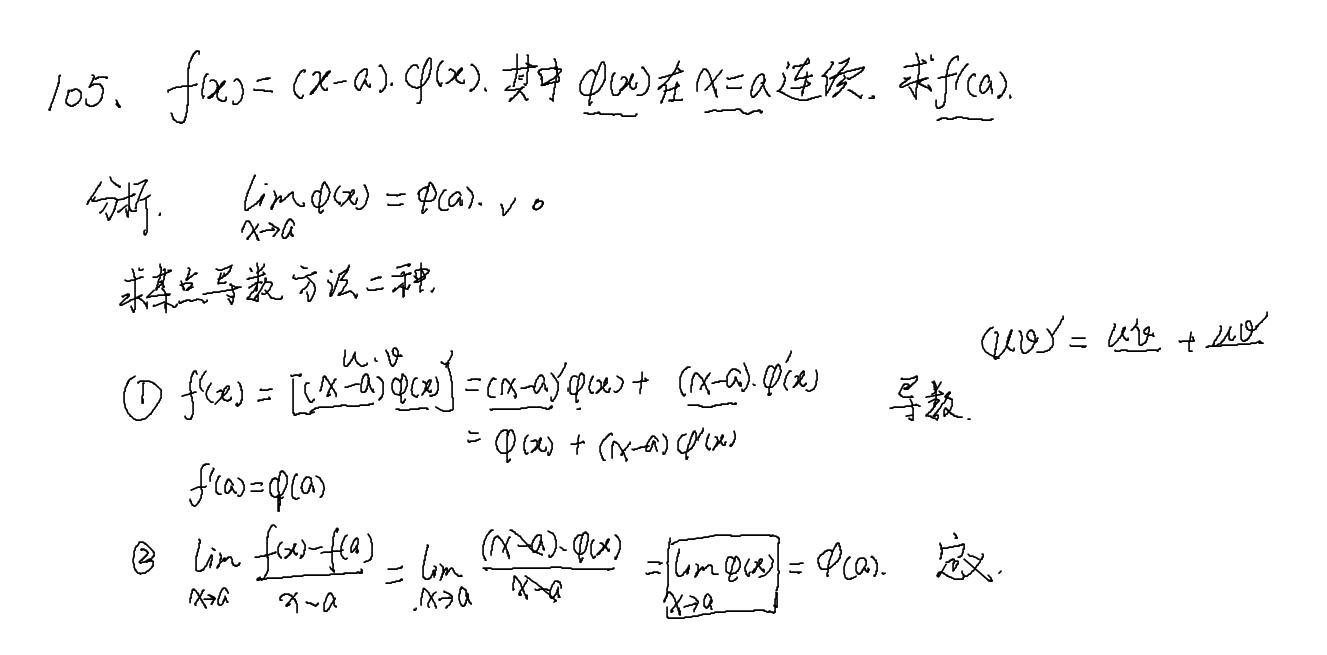 105、 f(x)=(x-a)·φ(x). 其中 φ(x)在 x=a 连续. 求f'(a).
分析. lim φ(x) = φ(a). √ 。
x→a
求某点导数方法二种.
(uv)' = u'v + uv'
u·v
① f'(x) = [(x-a)φ(x)]' = (x-a)'φ(x) + (x-a)·φ'(x) 导数.
= φ(x) + (x-a)φ'(x)
f'(a)=φ(a)
② lim f(x)-f(a) / x-a = lim (x-a)·φ(x) / x-a = lim φ(x) = φ(a). 定义.
x→a x→a x→a